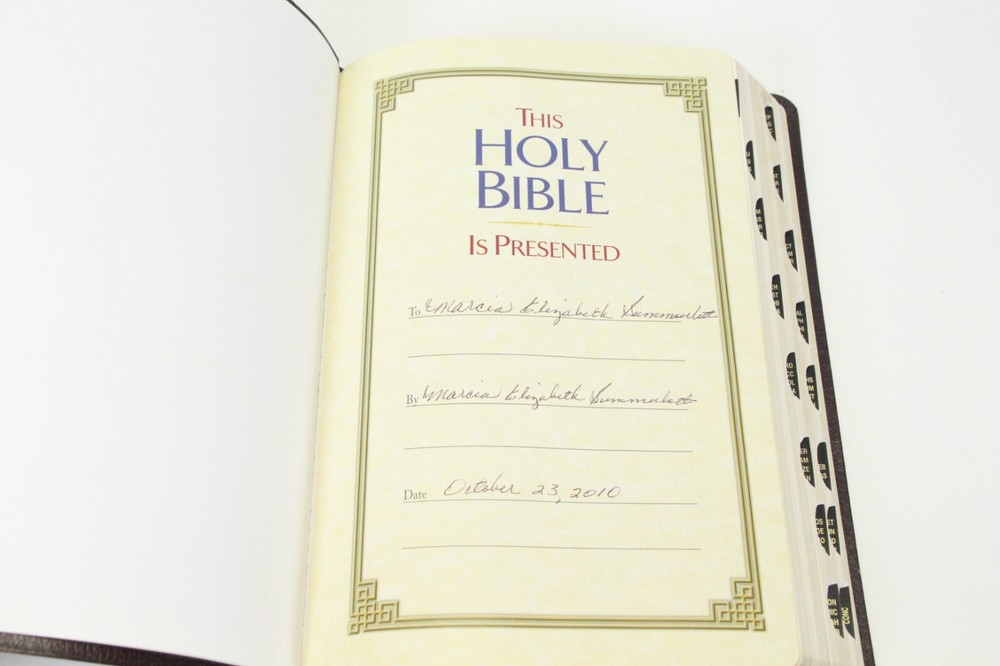 THIS
HOLY
BIBLE
IS PRESENTED
To Marcia Elizabeth Summerlott
By Marcia Elizabeth Summerlott
Date October 23, 2010
CONC